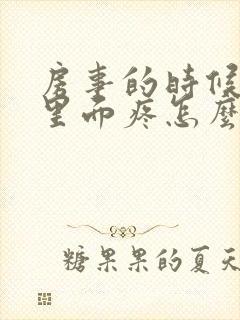 房事的時候
里面疼怎麼
糖果果的夏天